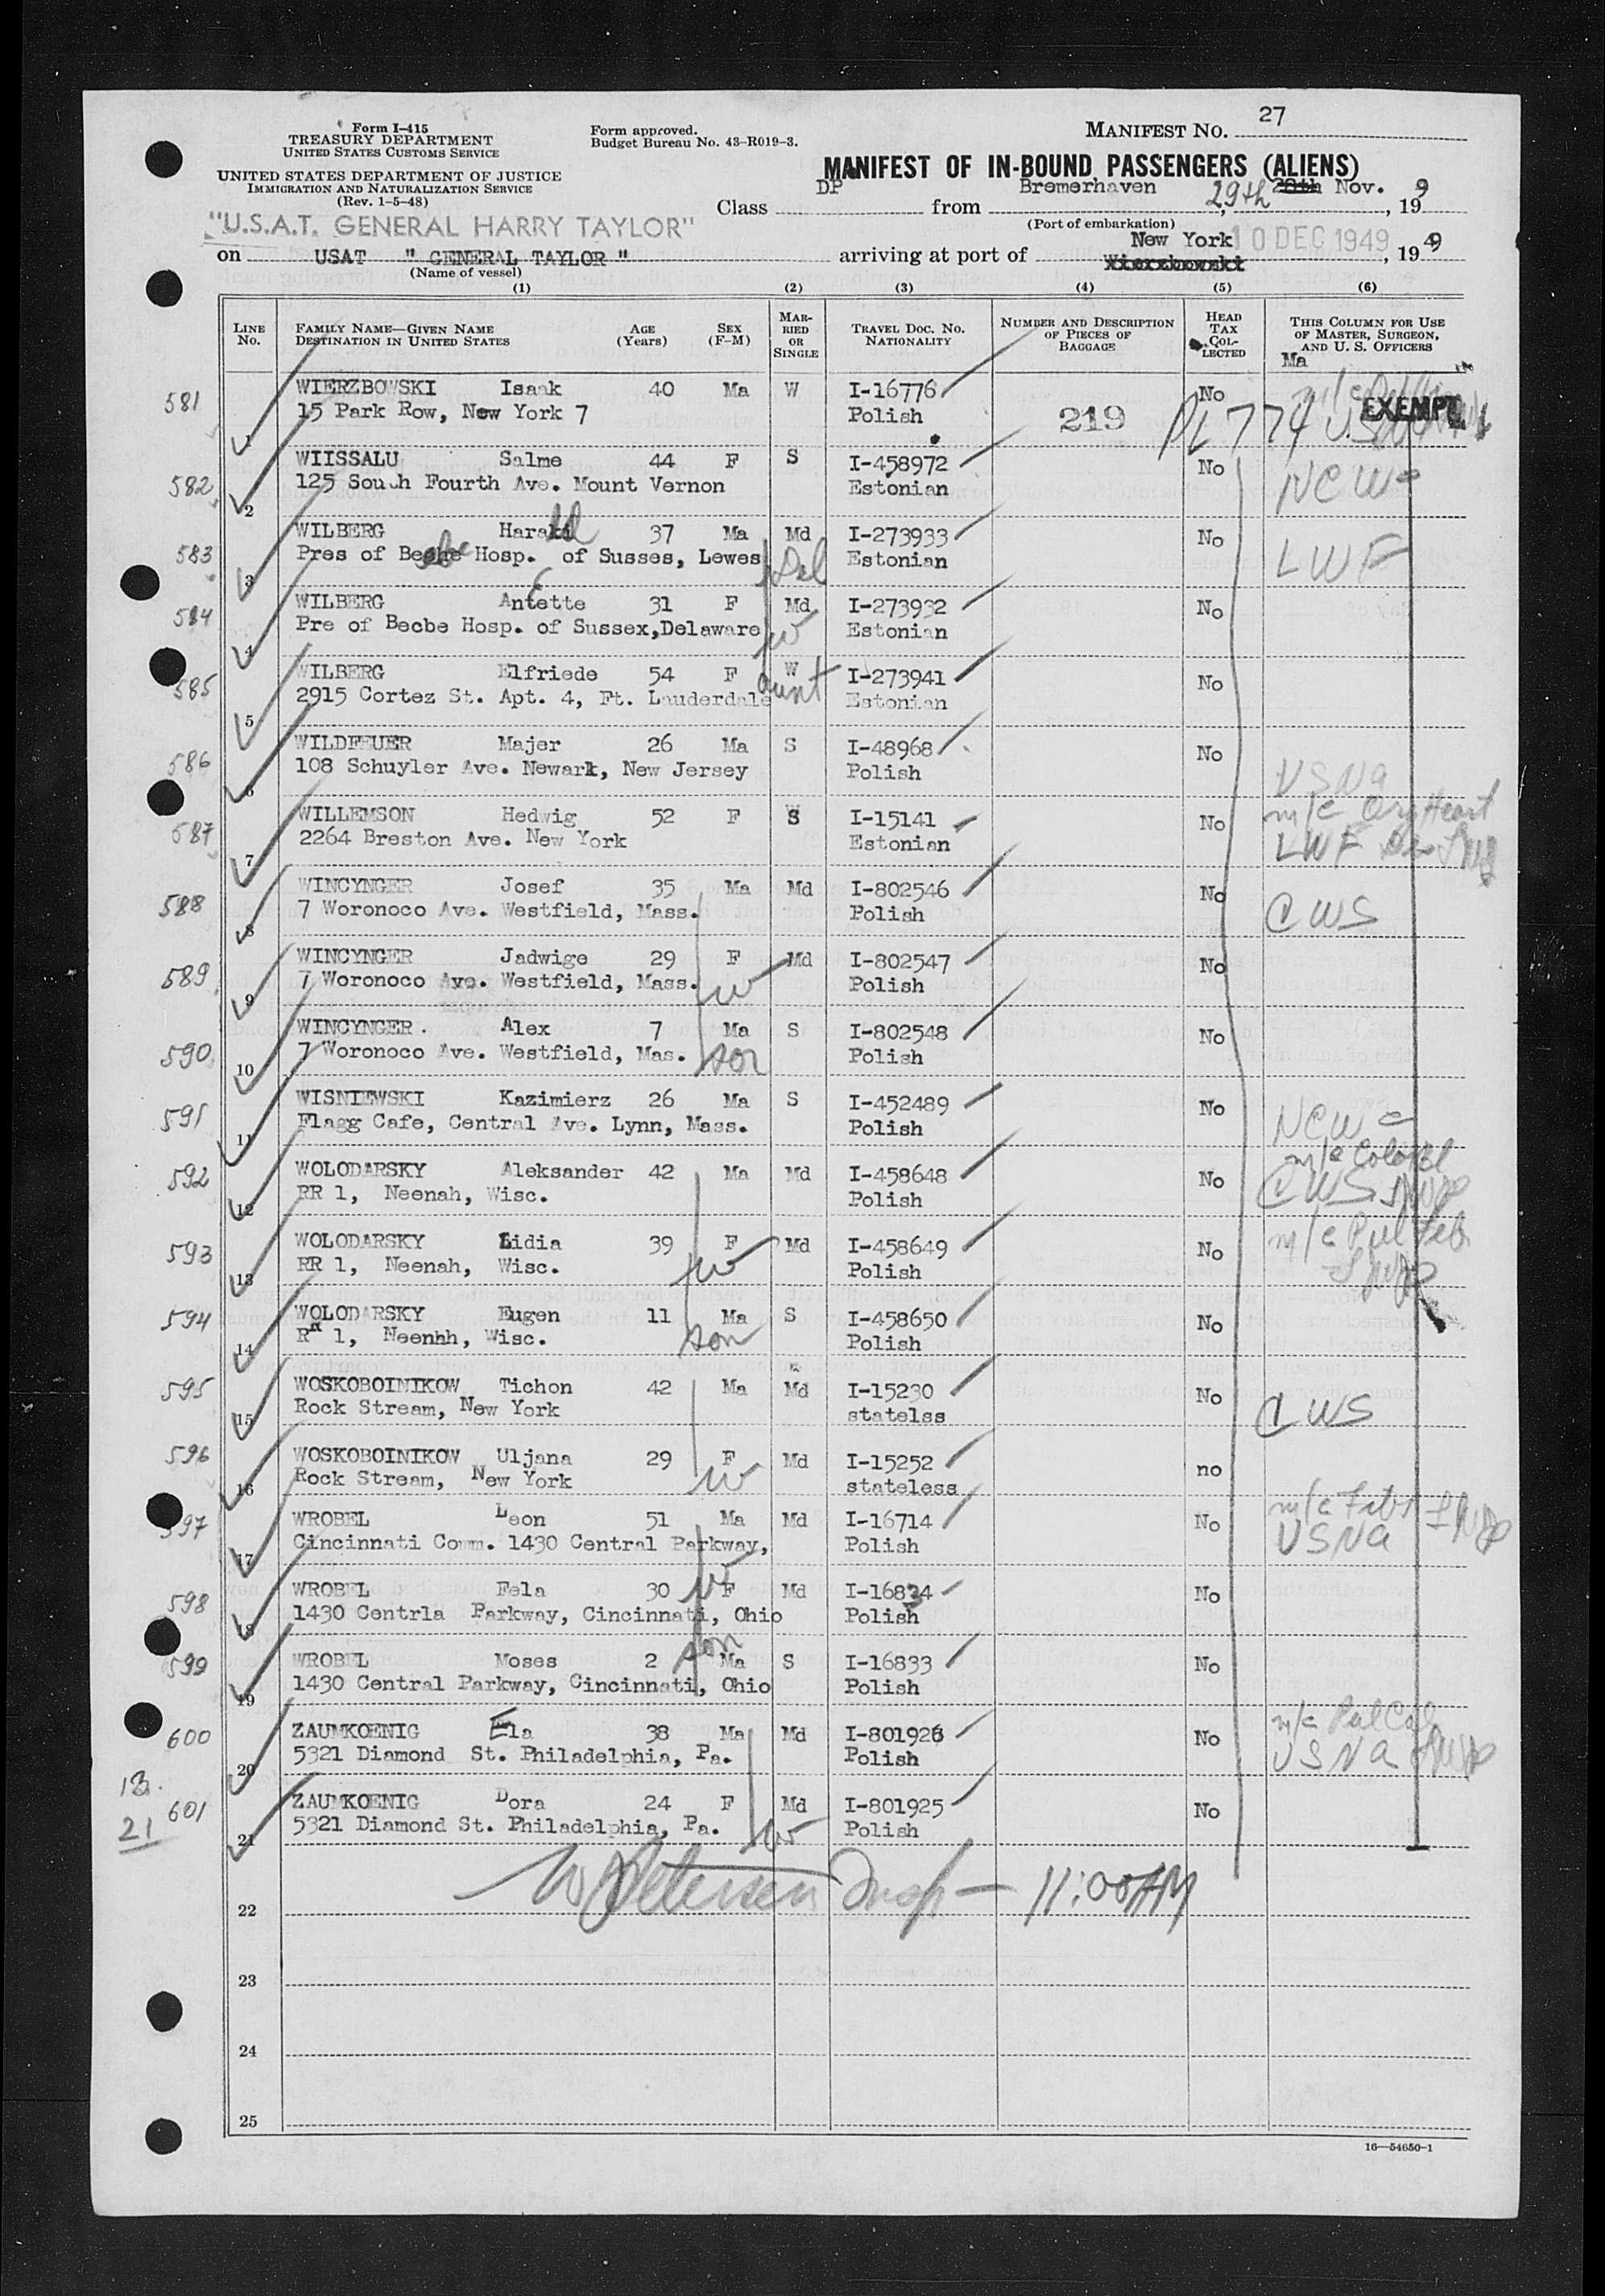 Form I-415
TREASURY DEPARTMENT
UNITED STATES CUSTOMS SERVICE
UNITED STATES DEPARTMENT OF JUSTICE
IMMIGRATION AND NATURALIZATION SERVICE
(Rev. 1-5-48)
Form approved.
Budget Bureau No. 43-R019-3.
MANIFEST NO. 27
MANIFEST OF IN-BOUND PASSENGERS (ALIENS)
Class DP from Bremerhaven, 29th Nov., 199
(Port of embarkation)
"U.S.A.T. GENERAL HARRY TAYLOR"
on USAT " GENERAL TAYLOR " arriving at port of New York 10 DEC 1949, 1949
(Name of vessel)
Wierzbowski
(1) (2) (3) (4) (5) (6)
LINE No. FAMILY NAME—GIVEN NAME DESTINATION IN UNITED STATES AGE (Years) SEX (F-M) MARRIED OR SINGLE TRAVEL DOC. NO. NATIONALITY NUMBER AND DESCRIPTION OF PIECES OF BAGGAGE HEAD TAX COLLECTED THIS COLUMN FOR USE OF MASTER, SURGEON, AND U. S. OFFICERS
Ma
581 1 WIERZBOWSKI Isaak 40 Ma W I-16776 No
15 Park Row, New York 7 Polish 219 PL 774 EXEMPT
582 2 WIISSALU Salme 44 F S I-458972 No NCWC
125 South Fourth Ave. Mount Vernon Estonian
583 3 WILBERG Harald 37 Ma Md I-273933 No LWF
Pres of Beebe Hosp. of Susses, Lewes Del Estonian
584 4 WILBERG Antette 31 F Md I-273932 No
Pre of Becbe Hosp. of Sussex,Delaware W Estonian
585 5 WILBERG Elfriede 54 F W I-273941 No
2915 Cortez St. Apt. 4, Ft. Lauderdale aunt Estonian
586 6 WILDFEUER Majer 26 Ma S I-48968 No
108 Schuyler Ave. Newark, New Jersey Polish USNA
587 7 WILLEMSON Hedwig 52 F S I-15141 No m/c Heart
2264 Breston Ave. New York Estonian LWF
588 8 WINCYNGER Josef 35 Ma Md I-802546 No CWS
7 Woronoco Ave. Westfield, Mass. Polish
589 9 WINCYNGER Jadwige 29 F Md I-802547 No
7 Woronoco Ave. Westfield, Mass. W Polish
590 10 WINCYNGER. Alex 7 Ma S I-802548 No
7 Woronoco Ave. Westfield, Mas. son Polish
591 11 WISNIEWSKI Kazimierz 26 Ma S I-452489 No
Flagg Cafe, Central Ave. Lynn, Mass. Polish NCWC
592 12 WOLODARSKY Aleksander 42 Ma Md I-458648 No m/c
RR 1, Neenah, Wisc. Polish CWS
593 13 WOLODARSKY Lidia 39 F Md I-458649 No m/c Pul Fib
RR 1, Neenah, Wisc. W Polish
594 14 WOLODARSKY Eugen 11 Ma S I-458650 No
RR 1, Neenhh, Wisc. son Polish
595 15 WOSKOBOINIKOW Tichon 42 Ma Md I-15230 No CWS
Rock Stream, New York statelss
596 16 WOSKOBOINIKOW Uljana 29 F Md I-15252 no
Rock Stream, New York W stateless
597 17 WROBEL Leon 51 Ma Md I-16714 No m/c Fibs
Cincinnati Comm. 1430 Central Parkway, Polish USNA
598 18 WROBEL Fela 30 W F Md I-16834 No
1430 Centrla Parkway, Cincinnati, Ohio Polish
599 19 WROBEL Moses 2 son Ma S I-16833 No
1430 Central Parkway, Cincinnati, Ohio Polish
600 20 ZAUMKOENIG Ela 38 Ma Md I-801926 No m/c
5321 Diamond St. Philadelphia, Pa. Polish USNA
601 21 ZAUMKOENIG Dora 24 F Md I-801925 No
5321 Diamond St. Philadelphia, Pa. W Polish
21
22 W Petersen Insp — 11:00 AM
23
24
25
16—54650-1